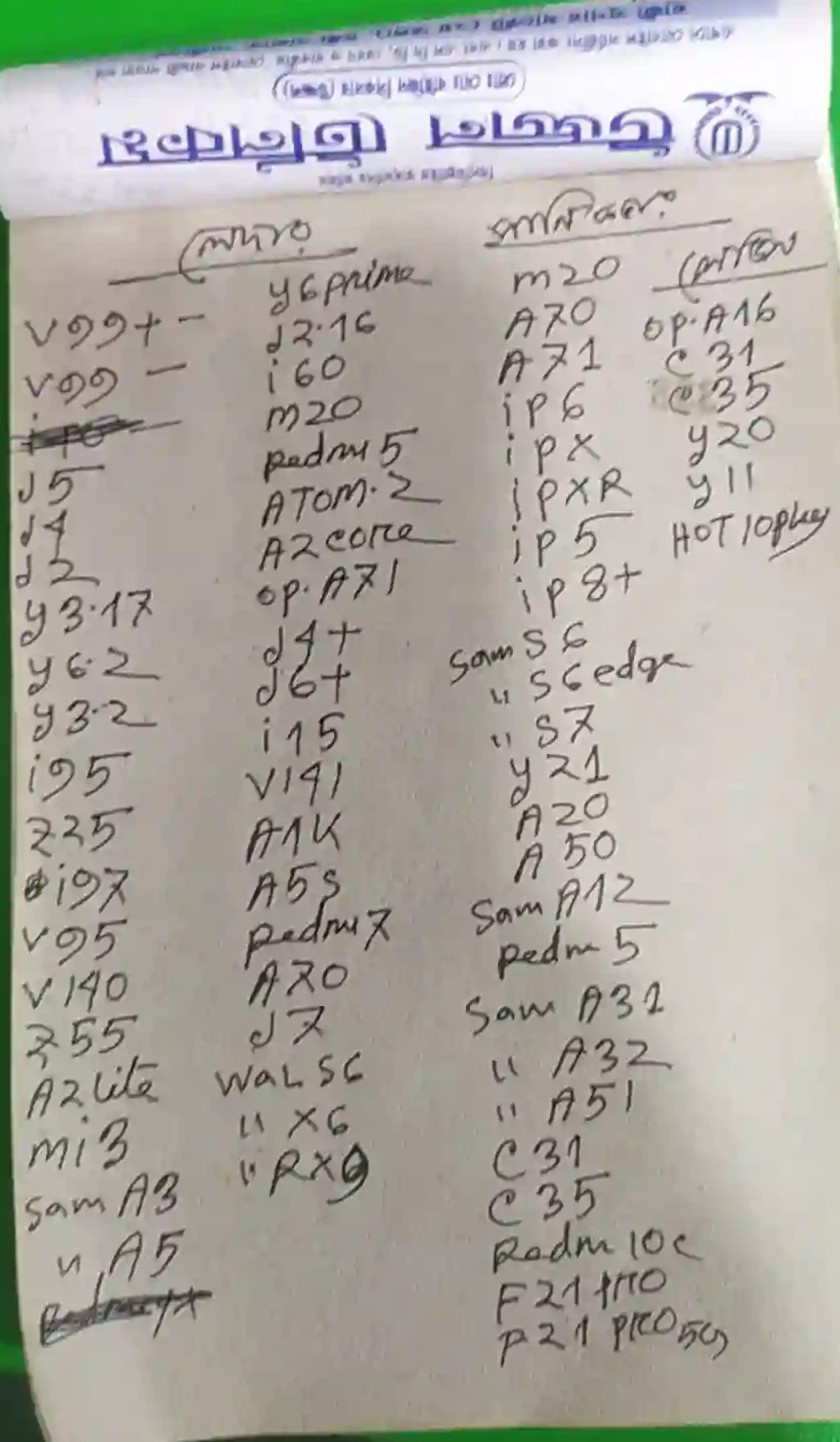 উজ্জল টেলিকম
লেদার
V99+ -
V99 -
J5
J4
J2
y3.17
y6.2
y3.2
i95
Z25
i97
V95
V140
Z55
A2 Lite
mi 3
Sam A3
" A5
y6 prime
J2.16
i60
m20
Redmi 5
ATOM.2
A2 core
op. A71
J4+
J6+
i15
V141
A1K
A5s
Redmi 7
A70
J7
WaL S6
" X6
" RX9
m20
A70
A71
ip 6
ip X
ip XR
ip 5
ip 8+
Sam S6
" S6 edge
" S7
y21
A20
A50
Sam A12
Redm 5
Sam A31
" A32
" A51
C31
C35
Redm 10c
F21 PRO
F21 PRO 5G
op. A16
C 31
C 35
y20
y11
HOT 10 play